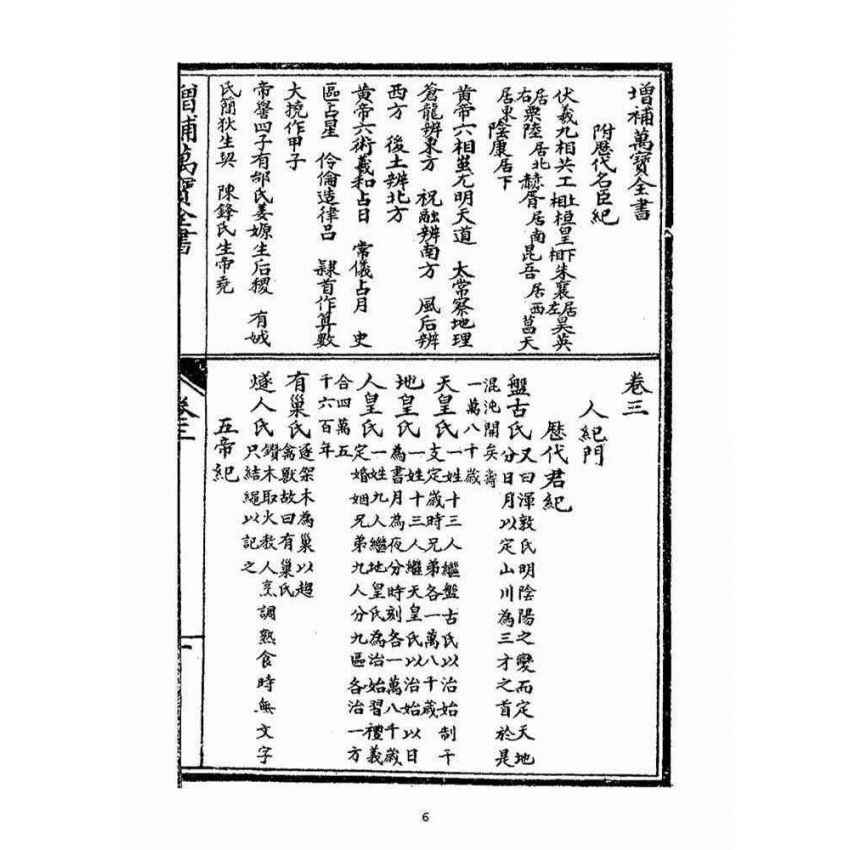 增補萬寶全書
附歷代名臣紀
伏羲九相共工上相桓皇下相朱襄居左昊英
居右粟陸居北赫胥居南昆吾居西葛天
居東陰康居下
黃帝六相蚩尤明天道 太常察地理
蒼龍辨東方 祝融辨南方 風后辨
西方 後土辨北方
黃帝六術羲和占日 常儀占月 史
區占星 伶倫造律呂 隸首作算數
大撓作甲子
帝嚳四子有邰氏姜嫄生后稷 有娀
氏簡狄生契 陳鋒氏生帝堯
卷三
人紀門
歷代君紀
盤古氏又曰渾敦氏明陰陽之變而定天地
分日月以定山川為三才之首於是
混沌開矣壽
一萬八千歲
天皇氏一姓十三人繼盤古氏以治始制干
支定歲時兄弟各一萬八千歲
地皇氏一姓十三人繼天皇氏以治始以日
為書月為夜分時刻各一萬八千歲
人皇氏一姓九人繼地皇氏為治始習禮義
定婚姻兄弟九人分九區各治一方
合四萬五
千六百年
有巢氏逐架木為巢以超
禽獸故曰有巢氏
燧人氏鑽木取火教人烹調熟食時無文字
只結繩以記之
五帝紀
增補萬寶全書
卷三
一
6